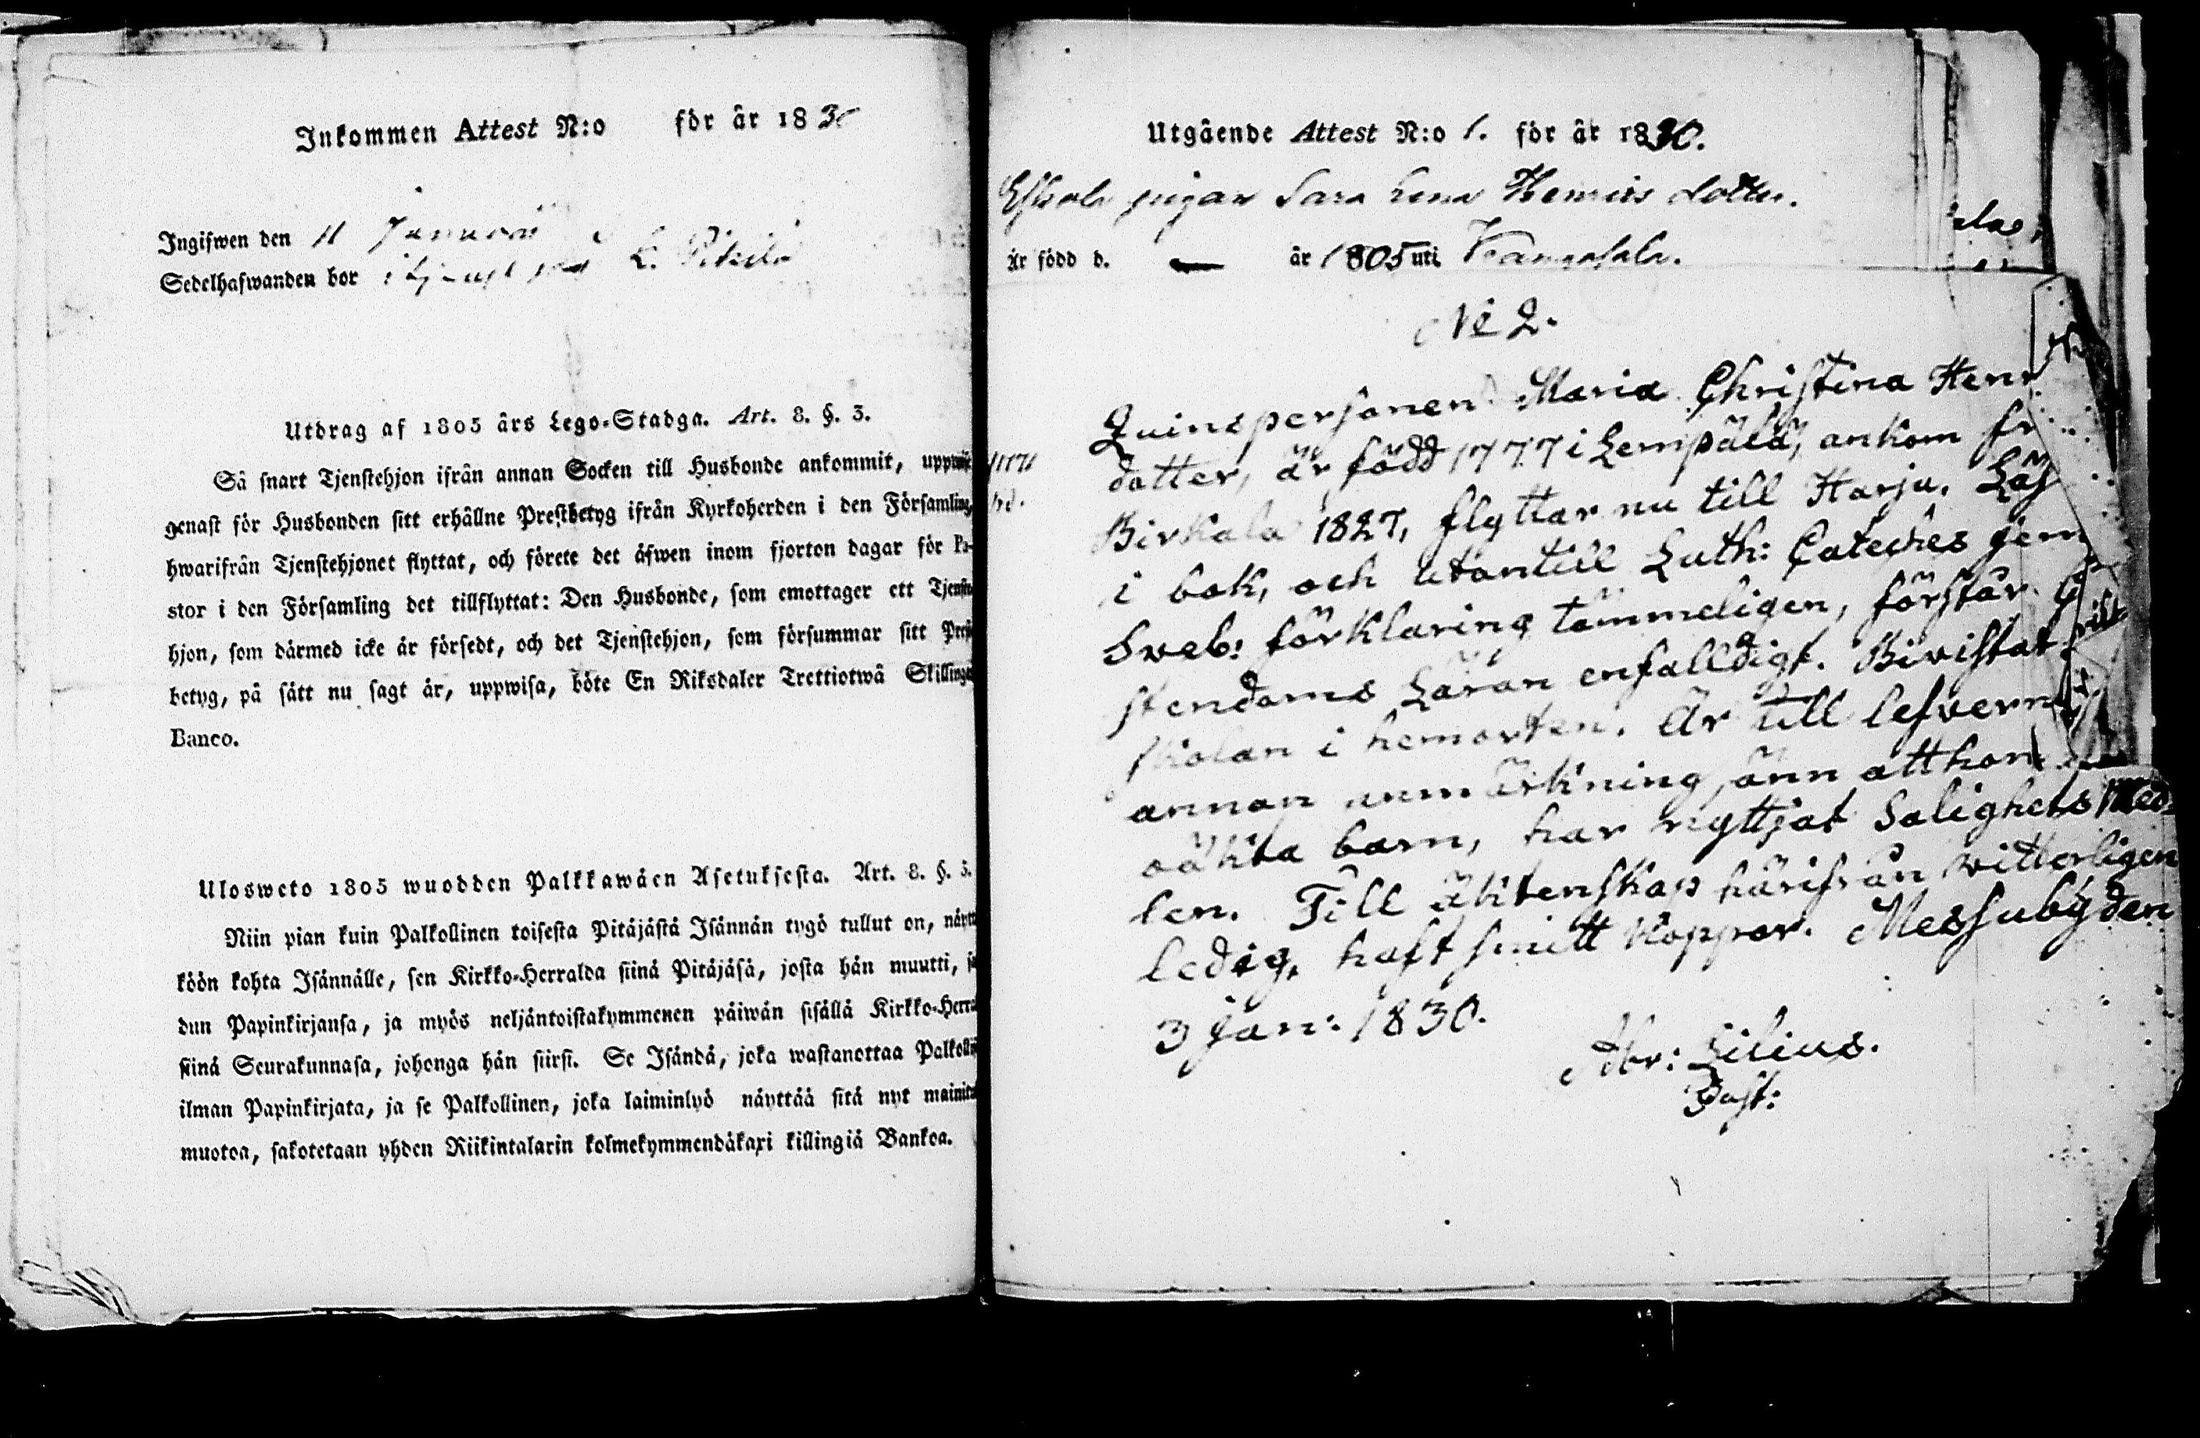 Inkommen Attest N:o för år 1830
Ingifwen den 11 Januari
Sedelhafwanden bor i tjenst på L. Pitkilä
Utdrag af 1805 års Lego-Stadga. Art. 8. §. 3.
Så snart Tjenstehjon ifrån annan Socken till Husbonde ankommit, uppwise
genast för Husbonden sitt erhållne Prestbetyg ifrån Kyrkoherden i den Församling,
hwarifrån Tjenstehjonet flyttat, och förete det äfwen inom fjorton dagar för Pa-
stor i den Församling det tillflyttat: Den Husbonde, som emottager ett Tjenste
hjon, som därmed icke är försedt, och det Tjenstehjon, som försummar sitt Prest
betyg, på sätt nu sagt är, uppwisa, böte En Riksdaler Trettiotwå Skillingar
Banco.
Ulosweto 1805 wuodden Palkkawäen Asetuksesta. Art. 8. §. 3.
Niin pian kuin Palkollinen toisesta Pitäjästä Isännän tygö tullut on, näytt
köön kohta Isännälle, sen Kirkko-Herralda siinä Pitäjäsä, josta hän muutti, sa
dun Papinkirjansa, ja myös neljäntoistakymmenen päiwän sisällä Kirkko-Herra
siinä Seurakunnasa, johonga hän siirsi. Se Isändä, joka wastanottaa Palkolli
ilman Papinkirjata, ja se Palkollinen, joka laiminlyö näyttää sitä nyt mainit
muotoa, sakotetaan yhden Riikintalarin kolmekymmendäkaxi killingiä Bankoa.
Utgående Attest N:o 1. för år 1830.
pigan Sara Lena Henriks dotter.
Är född d. — år 1805 uti Kangasala.
No 2.
Quinspersonen Maria Christina Henr
dotter, är född 1777 i Lempälä, ankom fr
Birkala 1827, flyttar nu till Harju. Läs
i bok, och utantill Luth: Cateches jem
Sveb: förklaring tämmeligen, förstår
stendoms Läran enfalldigt. Bivistat
skolan i hemorten. Är till lefvern
annan anmärkning, änn att hon
oäkta barn, har nyttjat Salighets Med-
len. Till äktenskap härifrån witterligen
ledig, haft smitt koppor. Messubÿden
3 Jan: 1830.
Abr: Lilius.
Past: